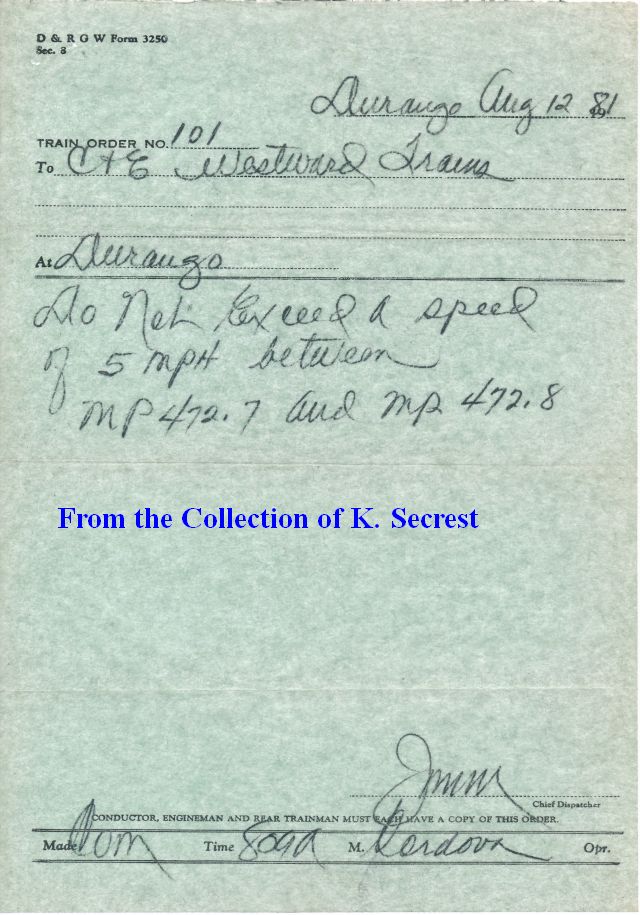 D & R G W Form 3250
Sec. 3
Durango Aug 12 1981
TRAIN ORDER NO. 101
To C & E Westward Trains
At Durango
Do Not Exceed A speed
of 5 MPH between
MP 472.7 and MP 472.8
From the Collection of K. Secrest
Chief Dispatcher
CONDUCTOR, ENGINEMAN AND REAR TRAINMAN MUST EACH HAVE A COPY OF THIS ORDER.
Made Com Time 809A M. Cordova Opr.